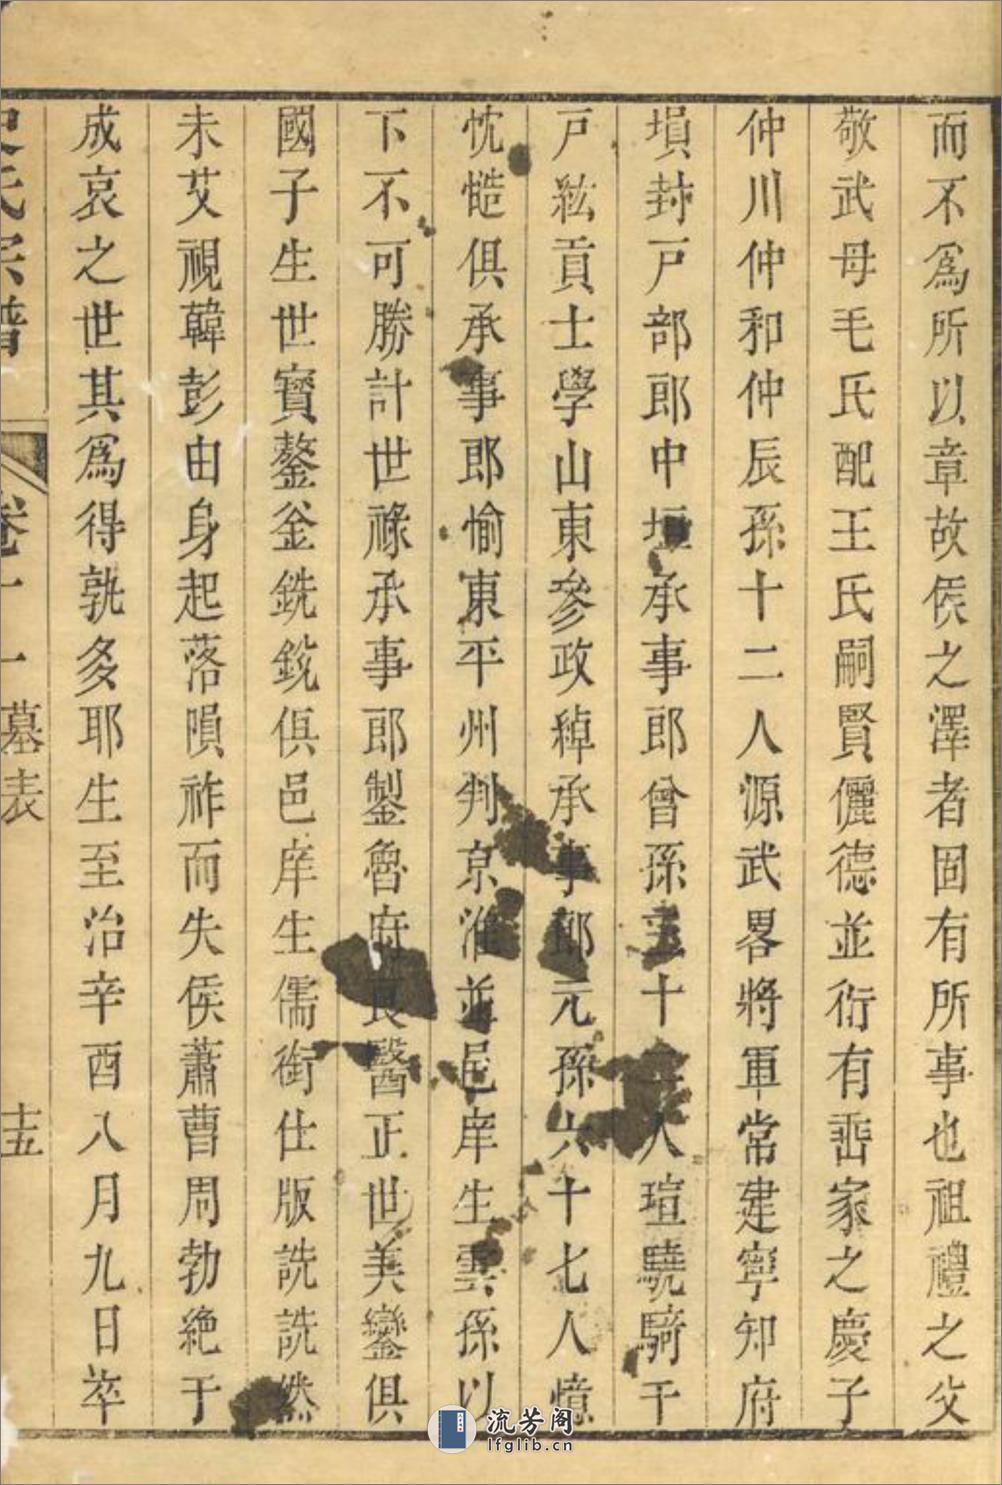 而不爲所以章故侯之澤者固有所事也祖禮之父
敬武母毛氏配王氏嗣賢儷德並衍有畱家之慶子
仲川仲和仲辰孫十二人源武畧將軍常建寧知府
塤封戸部郎中垣承事郎曾孫十人瑄驍騎千
戸紘貢士學山東參政綽承事郎元孫六十七人憶
忱慥俱承事郎愉東平州判京淮並邑庠生雲孫以
下不可勝計世祿承事郎製魯府良醫正世美鑾俱
國子生世寶鏊釡銑銳俱邑庠生儒術仕版詵詵然
未艾視韓彭由身起落隕祚而失侯蕭曹周勃絶于
成哀之世其爲得孰多耶生至治辛酉八月九日卒
史氏宗譜 卷十一 墓表 十五
流芳阁
lfglib.cn